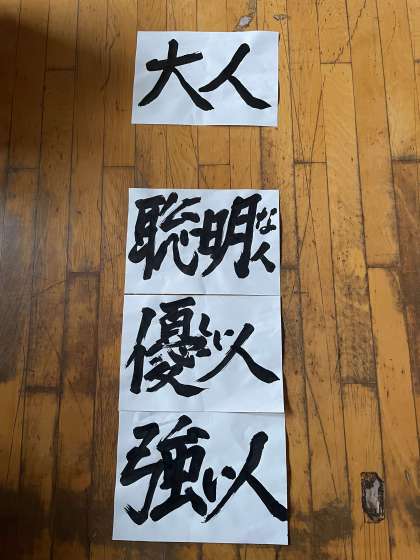 大人
聡明な人
優しい人
強い人